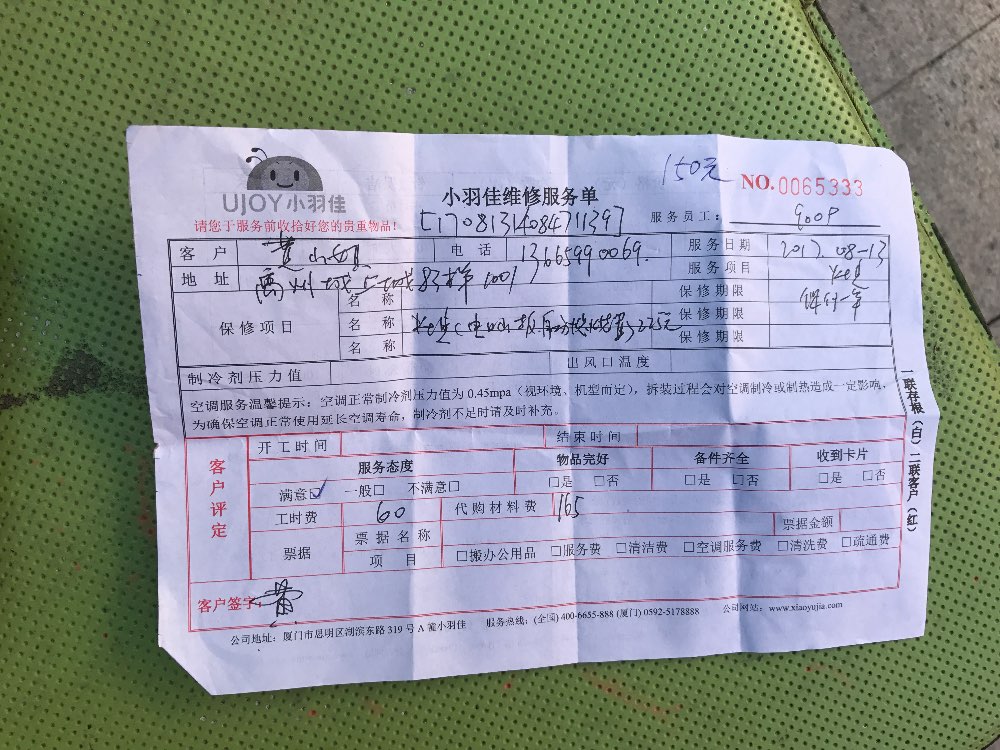 150元
NO.0065333
UJOY小羽佳
小羽佳维修服务单
请您于服务前收拾好您的贵重物品!
[1708131408471139]
服务员工:
客 户
电 话 13665990069.
服务日期 2017.08-13
地 址 1001
服务项目
名 称
保修期限
保修项目
名 称 225元
保修期限
名 称
保修期限
制冷剂压力值
出风口温度
空调服务温馨提示:空调正常制冷剂压力值为 0.45mpa(视环境、机型而定),拆装过程会对空调制冷或制热造成一定影响,
为确保空调正常使用延长空调寿命,制冷剂不足时请及时补充。
一联存根(白)二联客户(红)
客户评定
开工时间
结束时间
服务态度
物品完好
备件齐全
收到卡片
满意☑ 一般□ 不满意□
□是 □否
□是 □否
□是 □否
工时费 60
代购材料费 165
票据
票据名称
票据金额
项 目 □搬办公用品 □服务费 □清洁费 □空调服务费 □清洗费 □疏通费
客户签字: 黄
公司地址:厦门市思明区湖滨东路 319 号 A 瀧小羽佳 服务热线:(全国) 400-6655-888 (厦门) 0592-5178888 公司网站:www.xiaoyujia.com